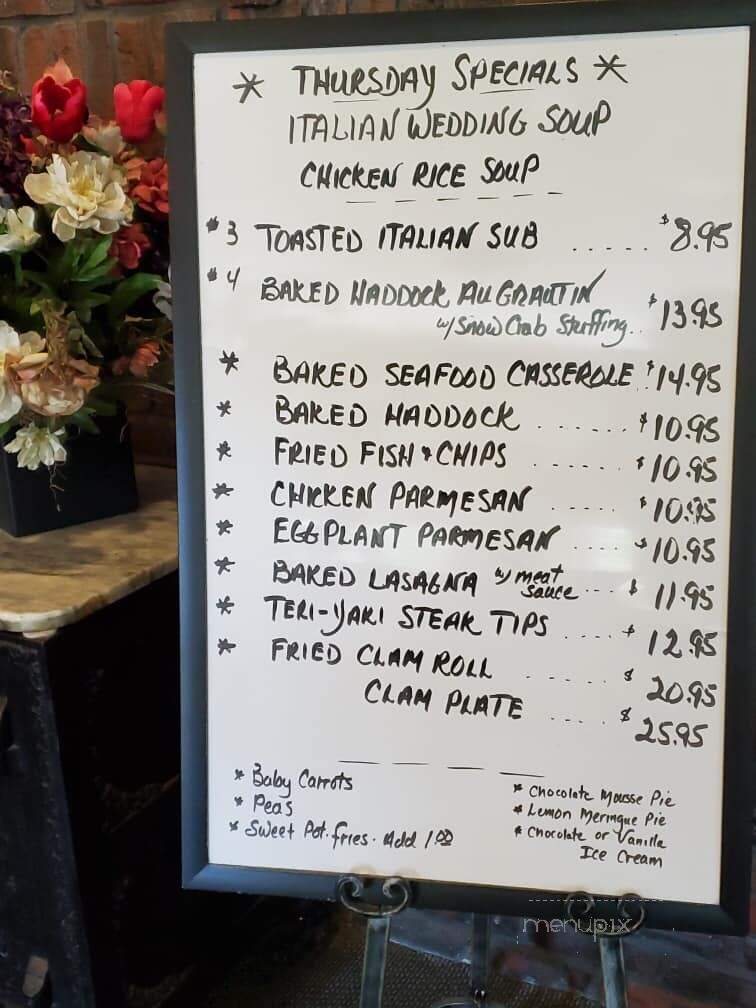 * THURSDAY SPECIALS *
ITALIAN WEDDING SOUP
CHICKEN RICE SOUP
#3 TOASTED ITALIAN SUB ..... $8.95
#4 BAKED HADDOCK AU GRAUTIN
w/ Snow Crab Stuffing.. $13.95
* BAKED SEAFOOD CASSEROLE .. $14.95
* BAKED HADDOCK ....... $10.95
* FRIED FISH & CHIPS ...... $10.95
* CHICKEN PARMESAN ..... $10.95
* EGGPLANT PARMESAN .... $10.95
* BAKED LASAGNA w/ meat sauce ... $11.95
* TERI-YAKI STEAK TIPS .... $12.95
* FRIED CLAM ROLL ...... $20.95
CLAM PLATE .... $25.95
* Baby Carrots
* Peas
* Sweet Pot. fries. Add 1.00
* Chocolate Mousse Pie
* Lemon Meringue Pie
* Chocolate or Vanilla
Ice Cream
menupix